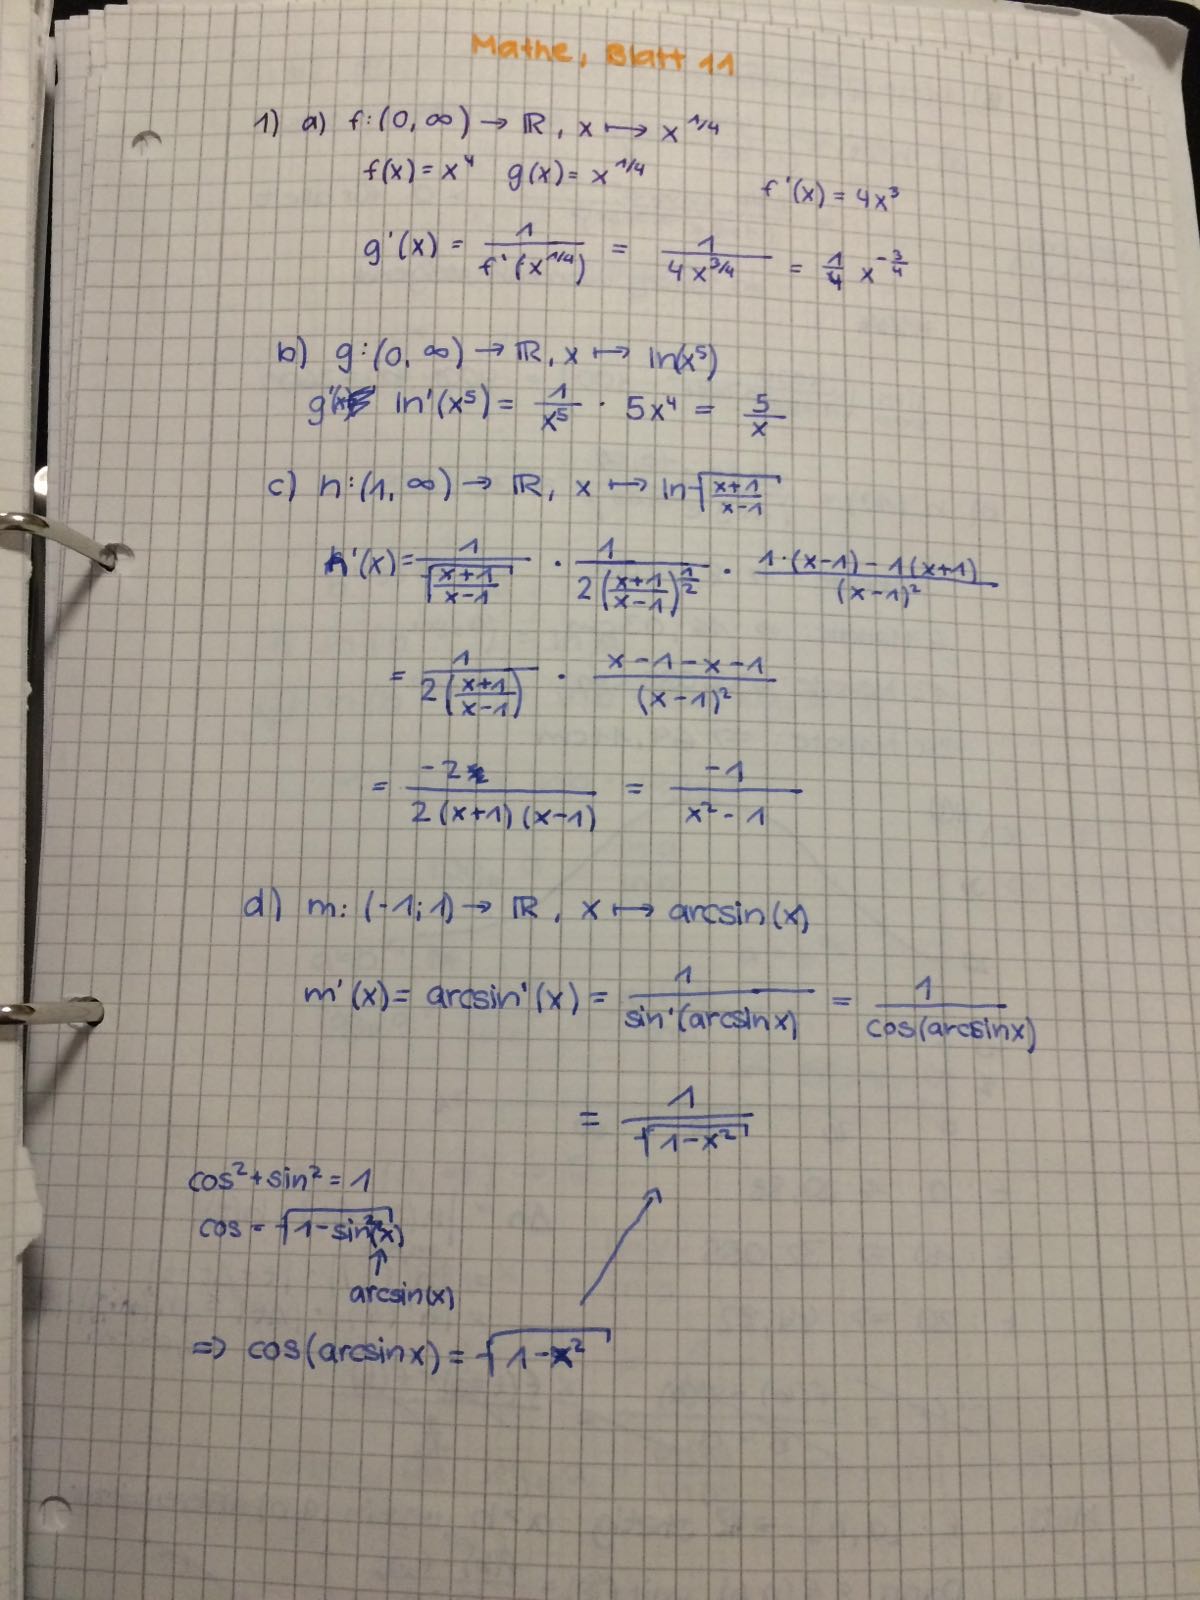 Mathe, Blatt 11
1) a) f: (0, ∞) → ℝ, x ↦ x^1/4
f(x) = x^4 g(x) = x^1/4 f'(x) = 4x^3
g'(x) = 1/(f'(x^1/4)) = 1/(4x^3/4) = 1/4 x^(-3/4)
b) g: (0, ∞) → ℝ, x ↦ ln(x^5)
g'(x) ln'(x^5) = 1/x^5 · 5x^4 = 5/x
c) h: (1, ∞) → ℝ, x ↦ ln √((x+1)/(x-1))
h'(x) = 1/√((x+1)/(x-1)) · 1/(2((x+1)/(x-1))^(1/2)) · (1·(x-1) - 1(x+1))/(x-1)^2
= 1/(2((x+1)/(x-1))) · (x-1-x-1)/(x-1)^2
= -2/(2(x+1)(x-1)) = -1/(x^2-1)
d) m: (-1; 1) → ℝ, x ↦ arcsin(x)
m'(x) = arcsin'(x) = 1/(sin'(arcsin x)) = 1/(cos(arcsin x))
= 1/√(1-x^2)
cos^2 + sin^2 = 1
cos = √(1-sin^2(x))
↑
arcsin(x)
⇒ cos(arcsin x) = √(1-x^2)